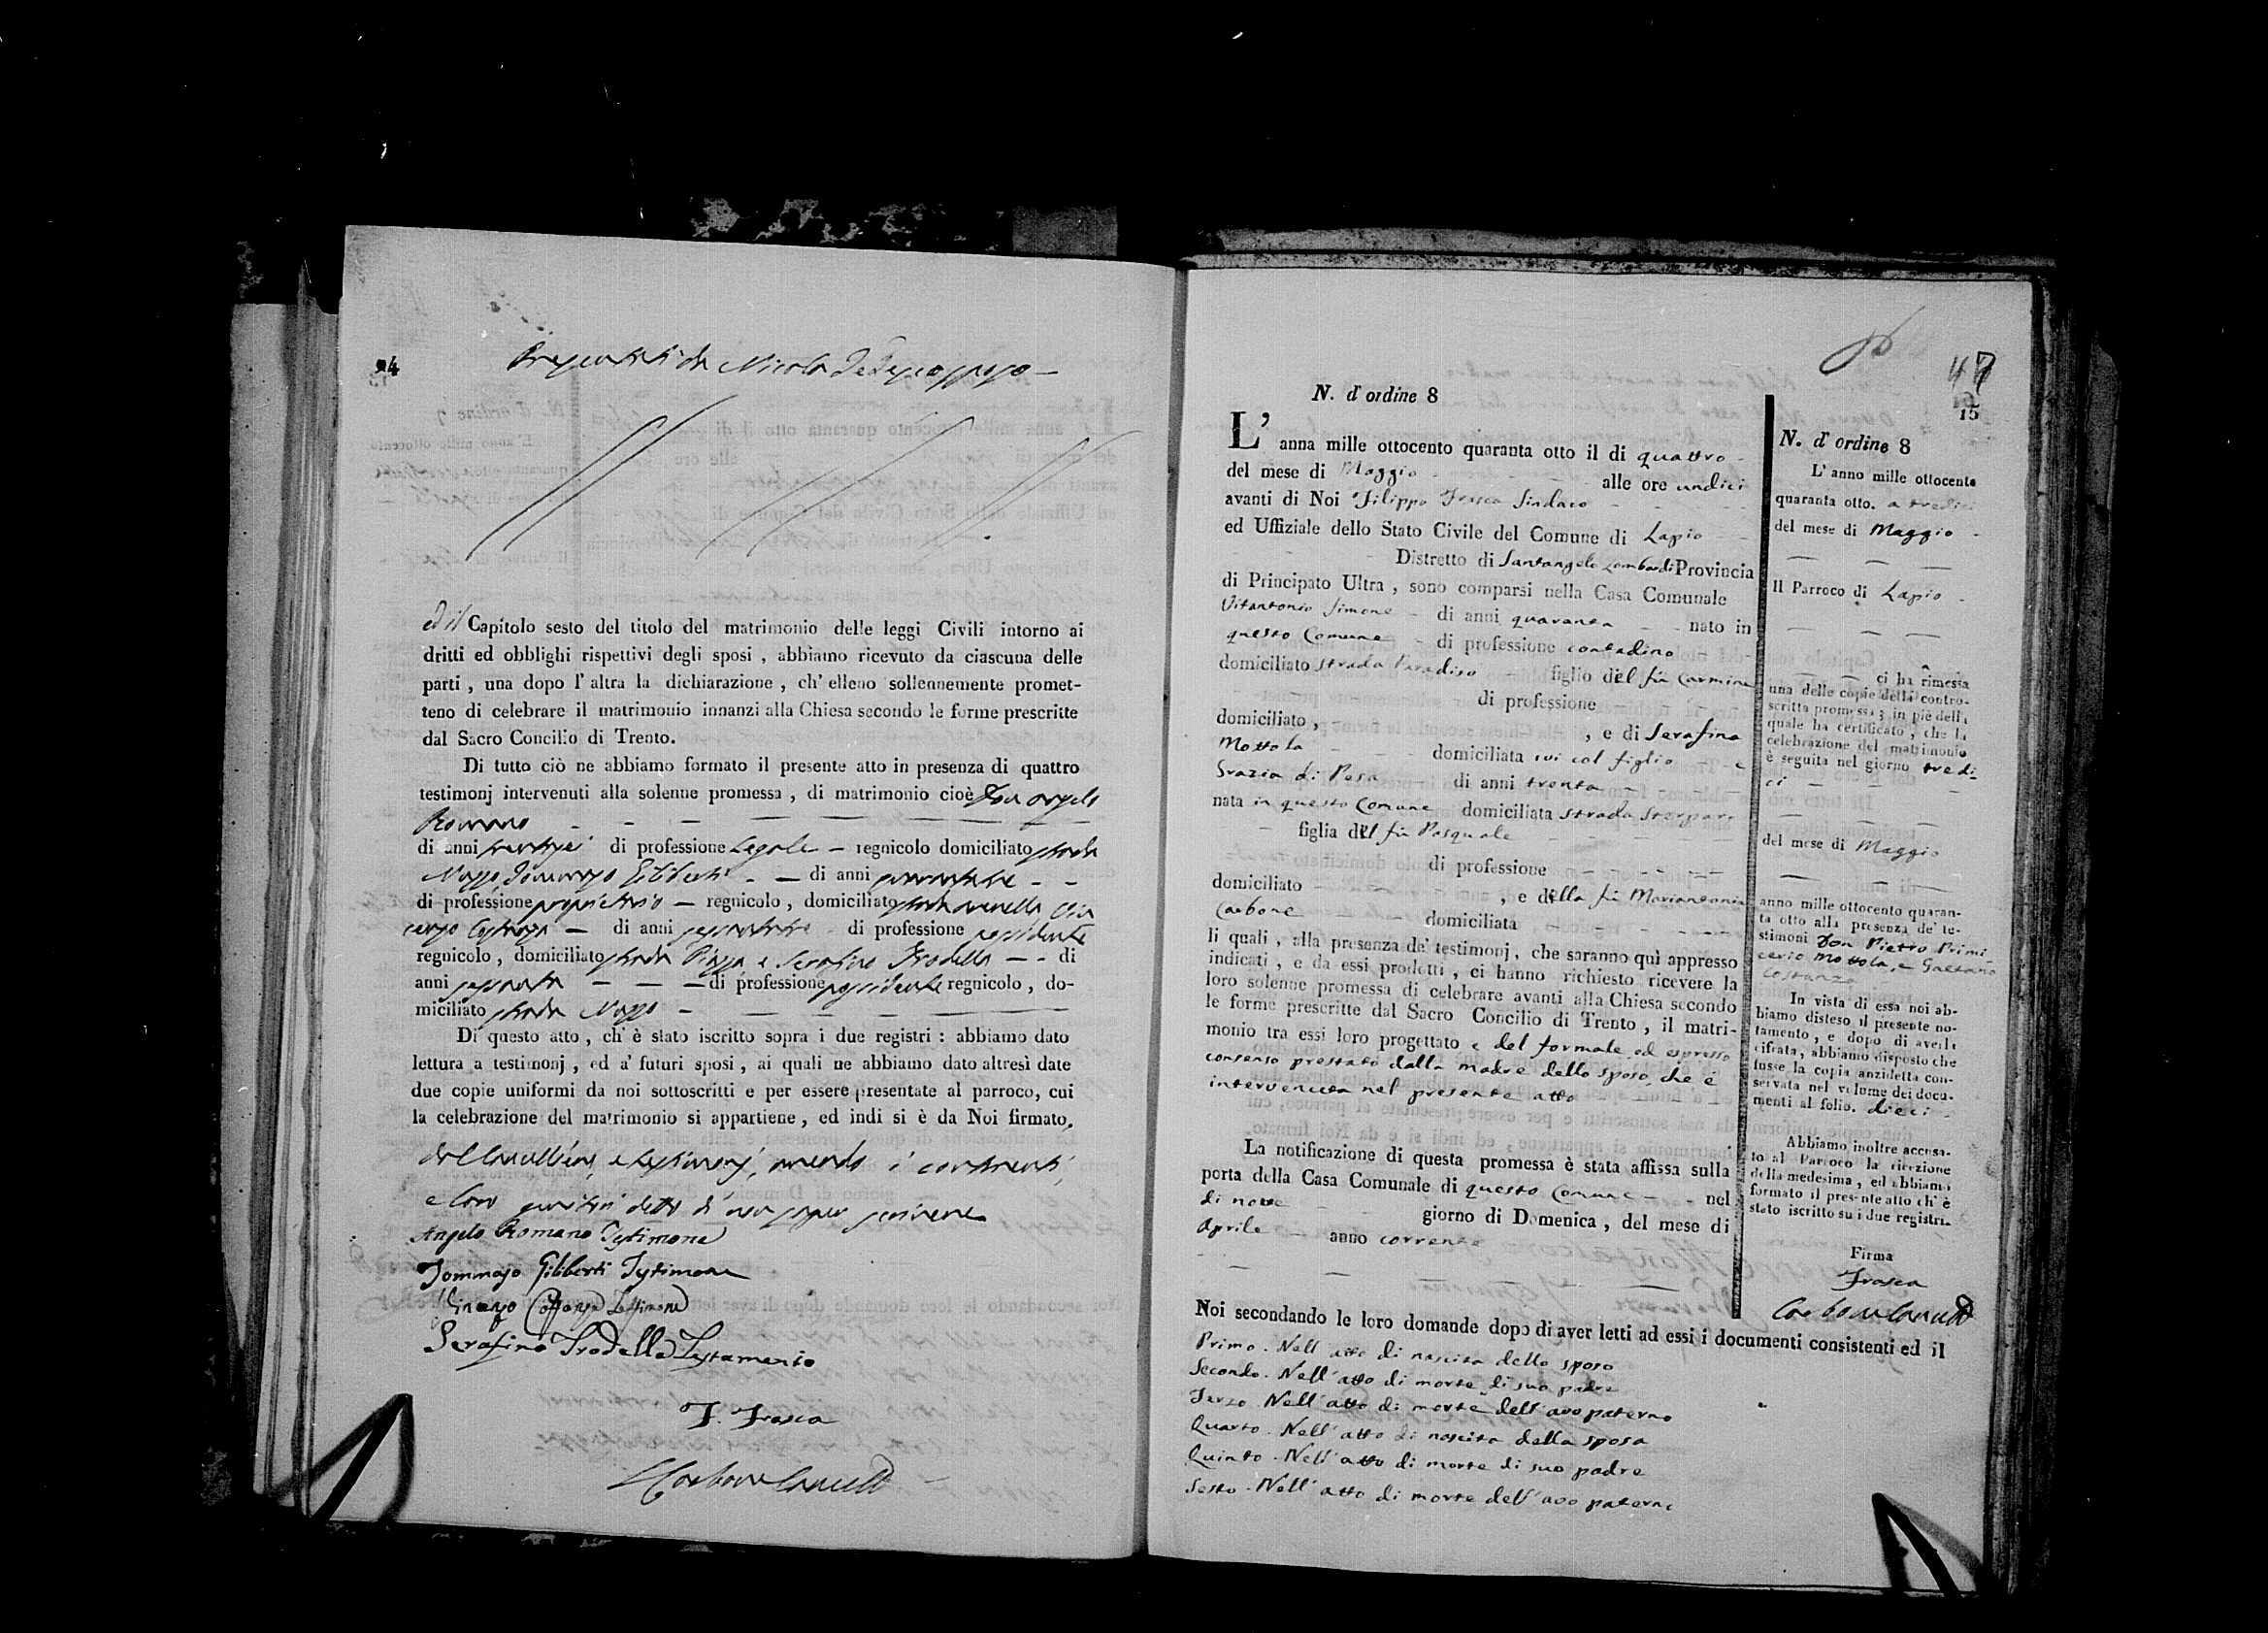 94
ed il Capitolo sesto del titolo del matrimonio delle leggi Civili intorno ai
dritti ed obblighi rispettivi degli sposi , abbiamo ricevuto da ciascuna delle
parti , una dopo l' altra la dichiarazione , ch' elleno sollennemente promet-
teno di celebrare il matrimonio innanzi alla Chiesa secondo le forme prescritte
dal Sacro Concilio di Trento.
Di tutto ciò ne abbiamo formato il presente atto in presenza di quattro
testimonj intervenuti alla solenne promessa , di matrimonio cioè Don Angelo
Romano
di anni di professione Legale – regnicolo domiciliato strada
Mazzo, Tommaso Giliberti – – di anni
di professione proprietario – regnicolo , domiciliato strada
di anni di professione possidente
regnicolo , domiciliato strada Piazza e Serafino Trodella – - di
anni sessanta – – – di professione possidente regnicolo , do-
miciliato strada Mazzo –
Di questo atto , ch' è stato iscritto sopra i due registri : abbiamo dato
lettura a testimonj , ed a' futuri sposi , ai quali ne abbiamo dato altresì date
due copie uniformi da noi sottoscritti e per essere presentate al parroco, cui
la celebrazione del matrimonio si appartiene , ed indi si è da Noi firmato,
dal Cancelliere, e testimonj, avendo i contraenti,
e loro genitori detto di non saper scrivere
Angelo Romano Testimone
Tommaso Giliberti Testimone
Testimone
Serafino Trodella Testamonio
F. Frasca
Carbone
47
15
N. d' ordine 8
L' anna mille ottocento quaranta otto il di quattro -
del mese di Maggio - alle ore undici
avanti di Noi Filippo Frasca Sindaco
ed Uffiziale dello Stato Civile del Comune di Lapio
Distretto di Santangelo Lombardi Provincia
di Principato Ultra , sono comparsi nella Casa Comunale
Vitantonio Simone – di anni quaranta - nato in
questo Comune - di professione contadino –
domiciliato strada Paradiso figlio del fù Carmine
di professione
domiciliato , , e di Serafina
Mottola domiciliata ivi col figlio – e
Grazia di Rosa di anni trenta
nata in questo Comune domiciliata strada
figlia del fù Pasquale
di professione
domiciliato , e della fù Mariantonia
Carbone domiciliata
li quali , alla presenza de' testimonj , che saranno quì appresso
indicati , e da essi prodotti , ci hanno richiesto ricevere la
loro solenne promessa di celebrare avanti alla Chiesa secondo
le forme prescritte dal Sacro Concilio di Trento , il matri-
monio tra essi loro progettato e del formale ed espresso
consenso prestato dalla madre dello sposo, che è
intervenuta nel presente atto
La notificazione di questa promessa è stata affissa sulla
porta della Casa Comunale di questo Comune – - nel
di nove giorno di Domenica , del mese di
Aprile – anno corrente
Noi secondando le loro domande dopo di aver letti ad essi i documenti consistenti ed il
Primo. Nell' atto di nascita dello sposo
Secondo. Nell' atto di morte di suo padre
Terzo. Nell' atto di morte dell' avo paterno
Quarto. Nell' atto di nascita della sposa
Quinto. Nell' atto di morte di suo padre
Sesto. Nell' atto di morte dell' avo paterno
N. d' ordine 8
L' anno mille ottocento
quaranta otto. a tredici
del mese di Maggio -
Il Parroco di Lapio -
ci ha rimessa
una delle copie della contro-
scritta promessa ; in piè della
quale ha certificato , che la
celebrazione del matrimonio
è seguita nel giorno tredi-
ci
del mese di Maggio
anno mille ottocento quaran-
ta otto alla presenza de' te-
stimoni Don Pietro Primi-
cerio Mottola, e Gaetano
Costanzo
In vista di essa noi ab-
biamo disteso il presente no-
tamento , e dopo di averla
cifrata, abbiamo disposto che
fusse la copia anzidetta con-
servata nel volume dei docu-
menti al folio. dieci -
Abbiamo inoltre accusa-
to al Parroco la ricezione
della medesima , ed abbiamo
formato il presente atto ch' è
stato iscritto su i due registri.
Firma
Frasca
Carbone